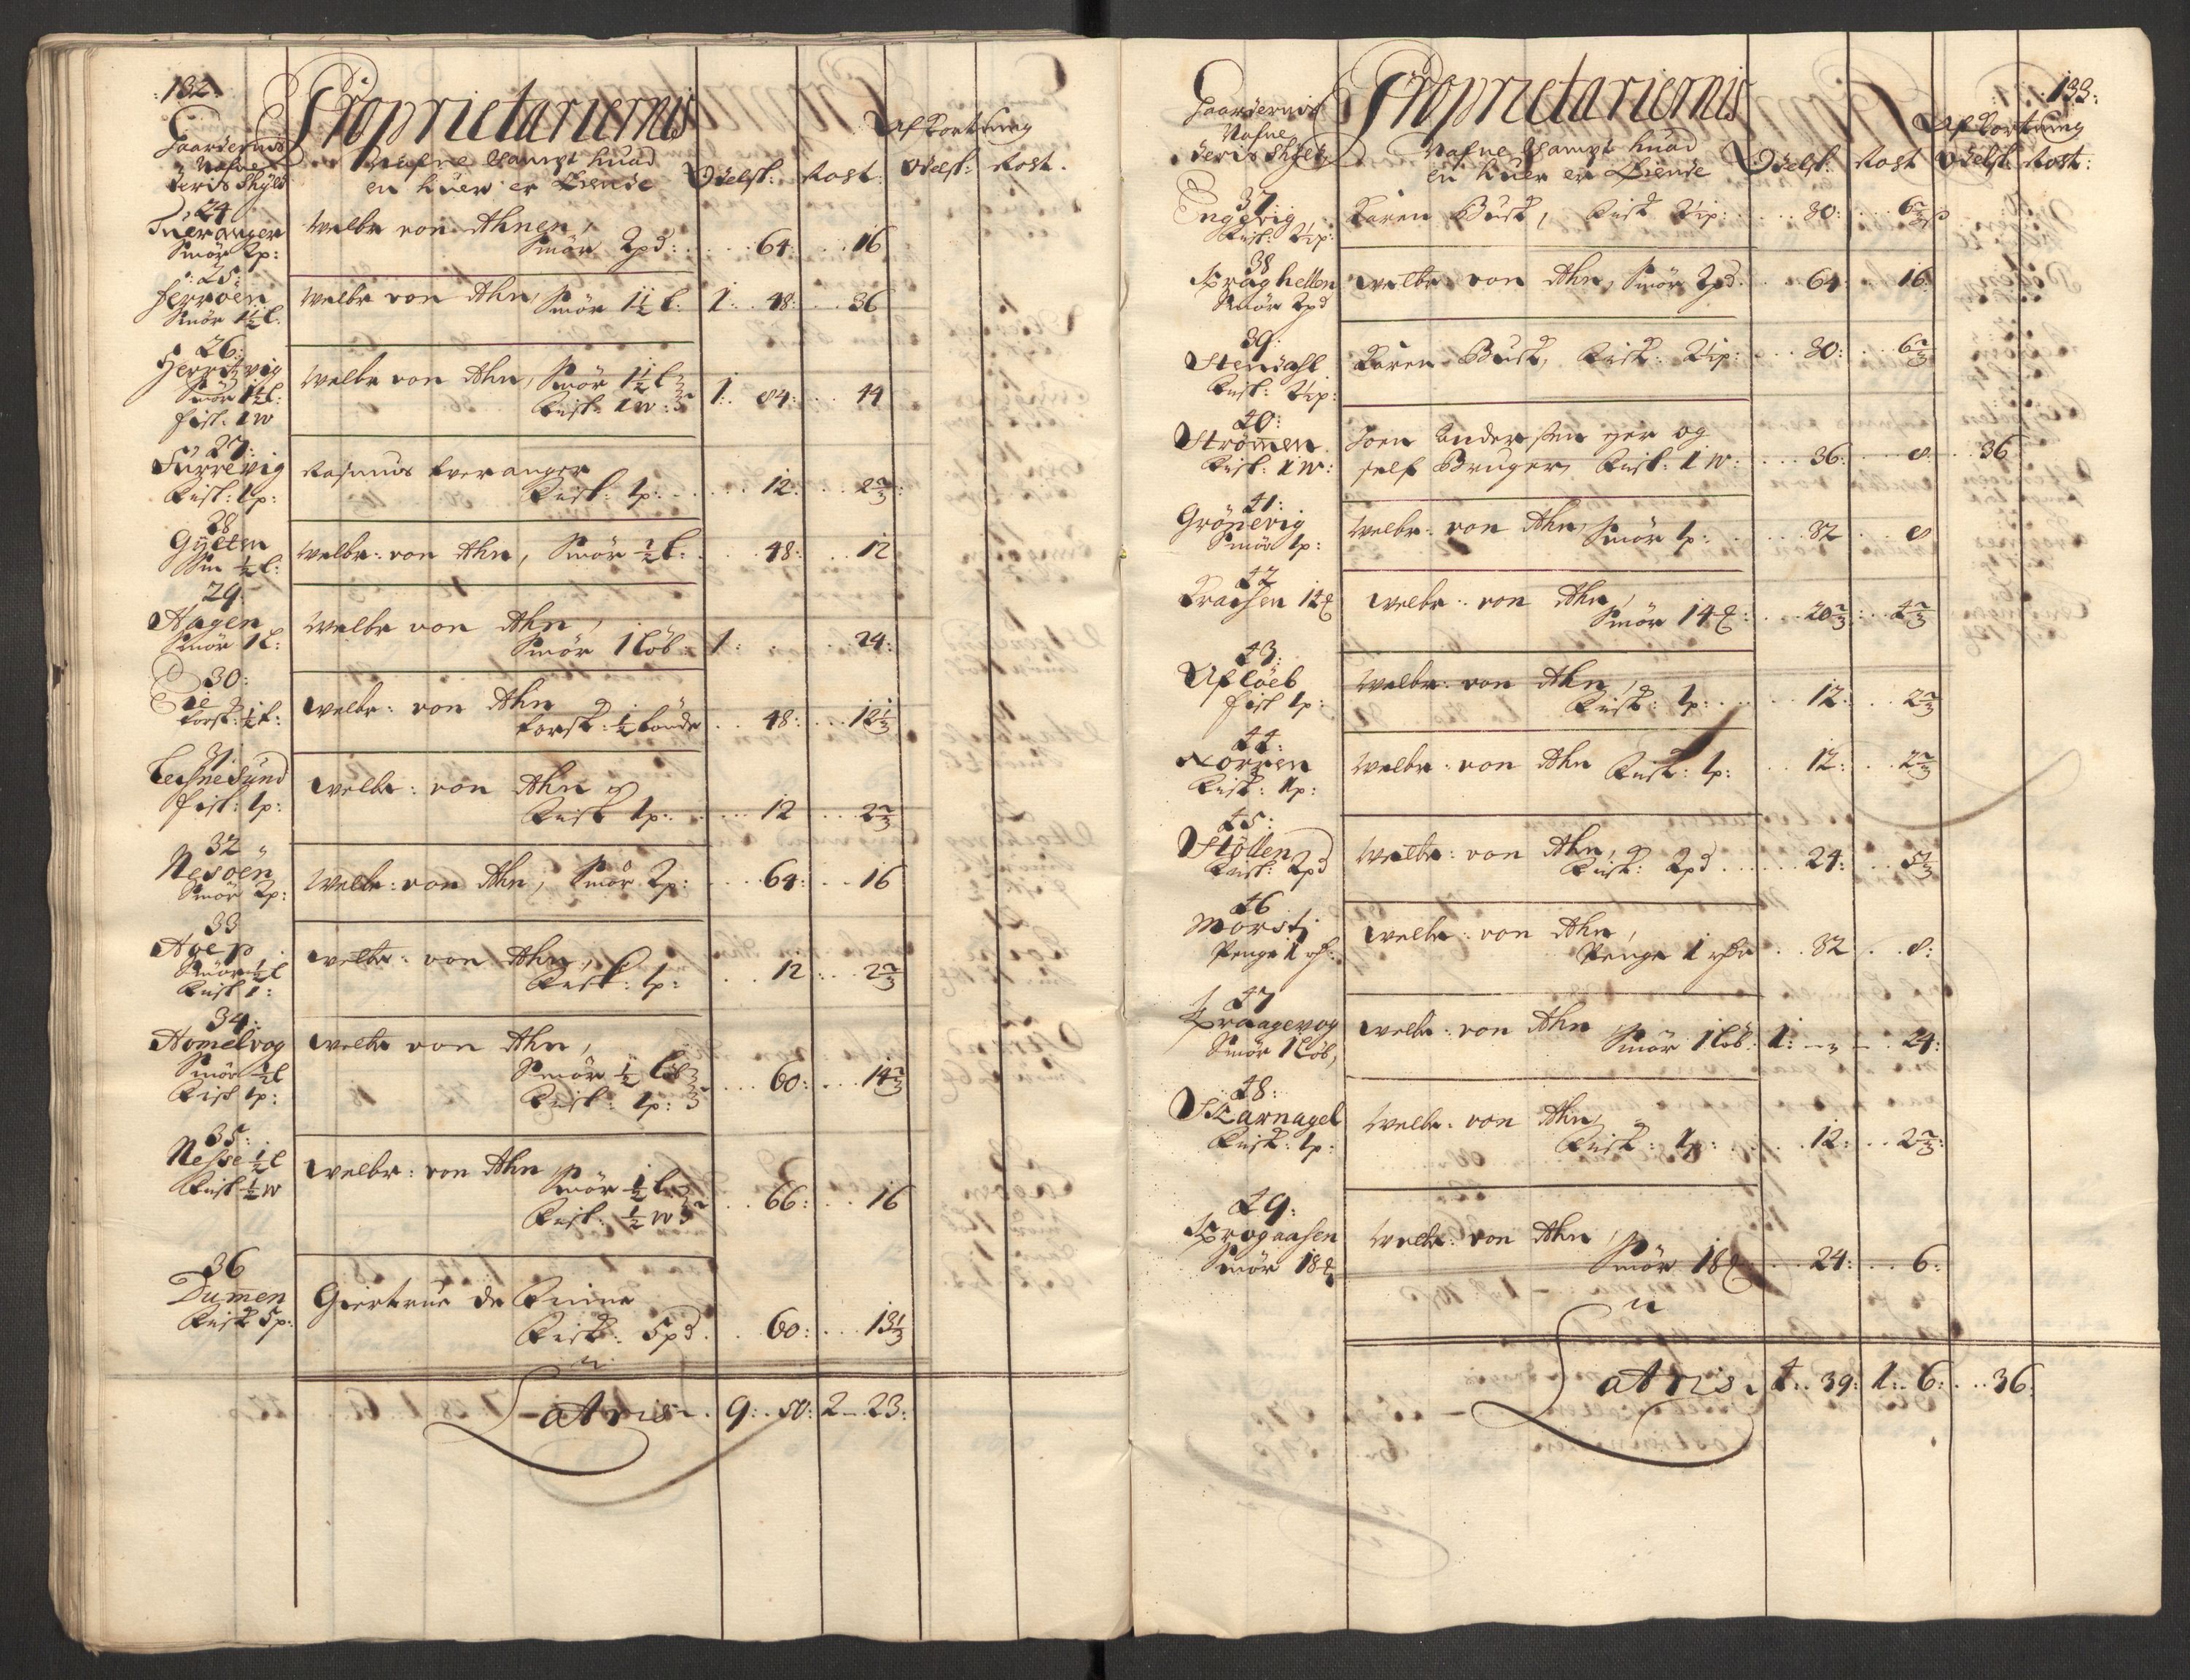 :132:
Gaardernis
Nafne
deris Skyld
Proprietariernis
Nafne Sampt huad
en huer er Eiende
Odelsk: Rost:
Afkortning
Odelsk: Rost.
24
Tueranger
Smör 2p:
Welbr von Ahnen,
Smör 2pd: 64: 16
25:
Herröen
Smör 1½ l.
Welbr von Ahn, Smör 1½ l: 1: 48: 36
26:
Herritzvig
Smör 1½ l:
fisk: 1 w
Welbr von Ahn, Smör 1½ l
Fisk: 1 w: 1: 84: 44
27:
Surrevig
Fisk: 1p:
Rasmus Tveranger
Fisk: 1p: 12: 2⅔:
28
Gylten
Sm ½ l:
Welbr: von Ahn, Smör ½ l: 48: 12
29
Hagen
Smör 1 l:
Welbr von Ahn,
Smör 1 löb: 1: 24:
30:
Eie
torsk: ½ t:
Welbr: von Ahn
torsk: ½ tönde 48: 12½
31
Lersnesund
fisk: 1p:
Welbr: von Ahn
Fisk 1p: 12 2⅔
32
Nesöen
Smör 2p:
Welbr: von Ahn, Smör 2p: 64: 16
33
Hoep
Smör ½ l
Fisk 1:
Welbr: von Ahn,
Fisk: 1p: 12 2⅔
34:
Homelvog
Smör ½ l
Fisk 1p:
Welbr von Ahn,
Smör ½ löb
Fisk: 1p: 60: 14⅔
35:
Nesse ½ l
Fisk ½ w
Welbr: von Ahn
Smör ½ l:
Fisk: ½ w 66: 16
36
Dumen
Fisk 5p:
Giertrue de Fine
Fisk: 5pd. 60: 13⅓
Latris 9: 50: 2 23:
133:
Gaardernis
Nafne
deris Skyld
Proprietariernis
Nafne Sampt huad
en huer er Eiende
Odelsk: Rost
Afkortning
Odelsk: Rost:
37
Engevig
Fisk: 2½p:
Karen Busk, Fisk 2½p: 30: 6⅔
38
Kraghellen
Smör 2pd
Welbr: von Ahn, Smör 2pd. 64: 16
39:
Stendahl
Fisk: 2½p:
Karen Busk, Fisk: 2½p: 30: 6⅔
40:
Strömen
Fisk: 1 w:
Joen Andersen ejer og
self Bruger, Fisk: 1 w: 36: 8 36
41:
Grönevig
Smör 1p:
Welbr: von Ahn, Smör 1p: 32 8
42
Kraasen 14
Welbr: von Ahn,
Smör 14: 20⅔: 4⅔
43:
Aflöeb
fisk 1p:
Welbr: von Ahn,
Fisk: 1p: 12: 2⅔
44:
Norren
Fisk: 1p:
Welbr: von Ahn Fisk: 1p: 12: 2⅔
45:
Stöllen
Fisk: 2pd
Welbr: von Ahn,
Fisk: 2pd 24: 5⅓
46
Morst
Penge 1
Welbr: von Ahn,
Penge 1 32 8:
47
Kraagevog
Smör 1 löb,
Welbr: von Ahn
Smör 1 löb: 1: 24:
48:
Skarnagel
Fisk: 1p:
Welbr: von Ahn
Fisk: 1p: 12: 2⅔:
49:
Krogaasen
Smör 18
Welbr: von Ahn,
Smör 18 24: 6:
Latris 4: 39: 1: 6: 36: